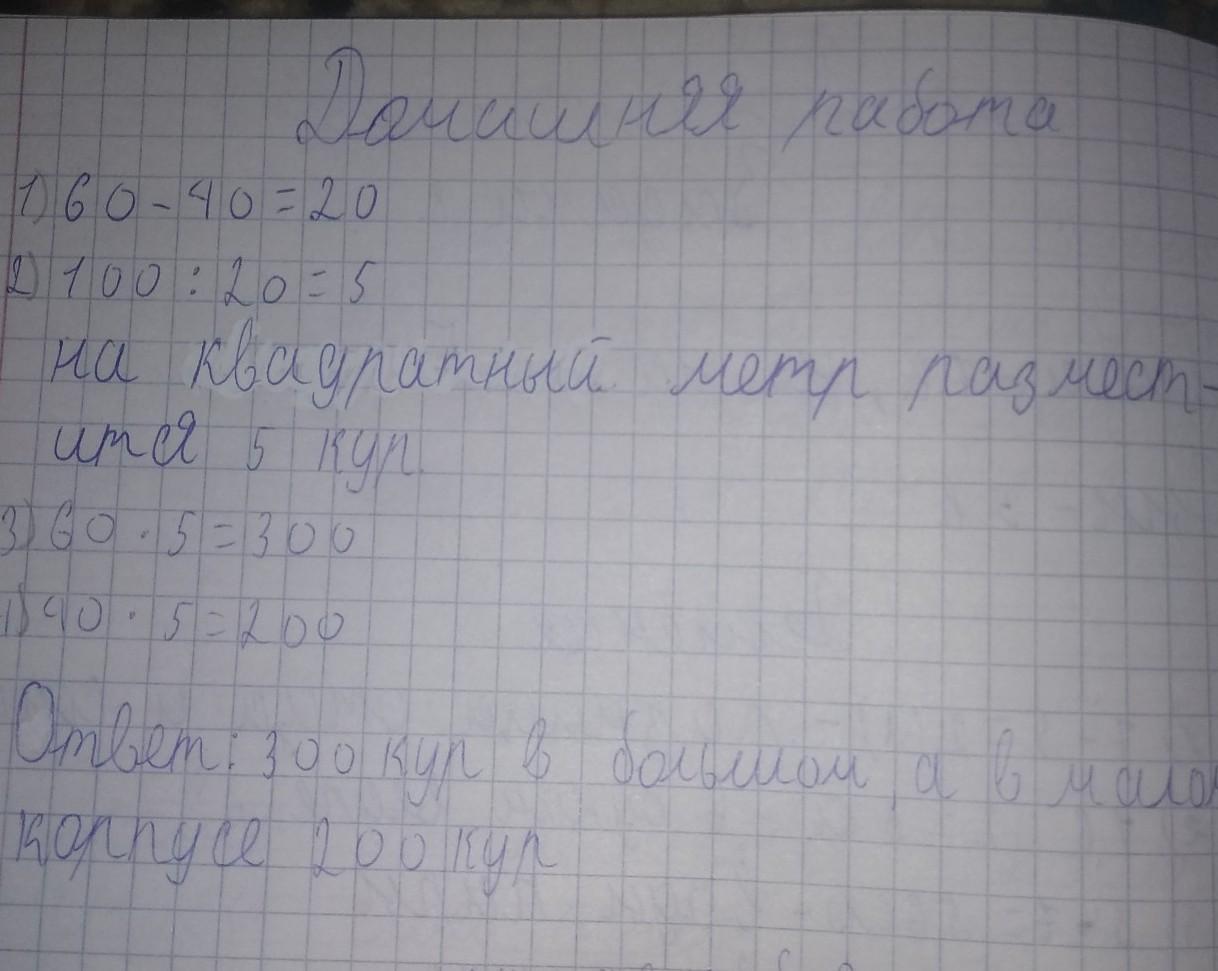 Домашняя работа
1) 60 - 40 = 20
2) 100 : 20 = 5
на квадратный метр размест-
ится 5 кур
3) 60 · 5 = 300
40 · 5 = 200
Ответ: 300 кур в большом, а в мало
корпусе 200 кур